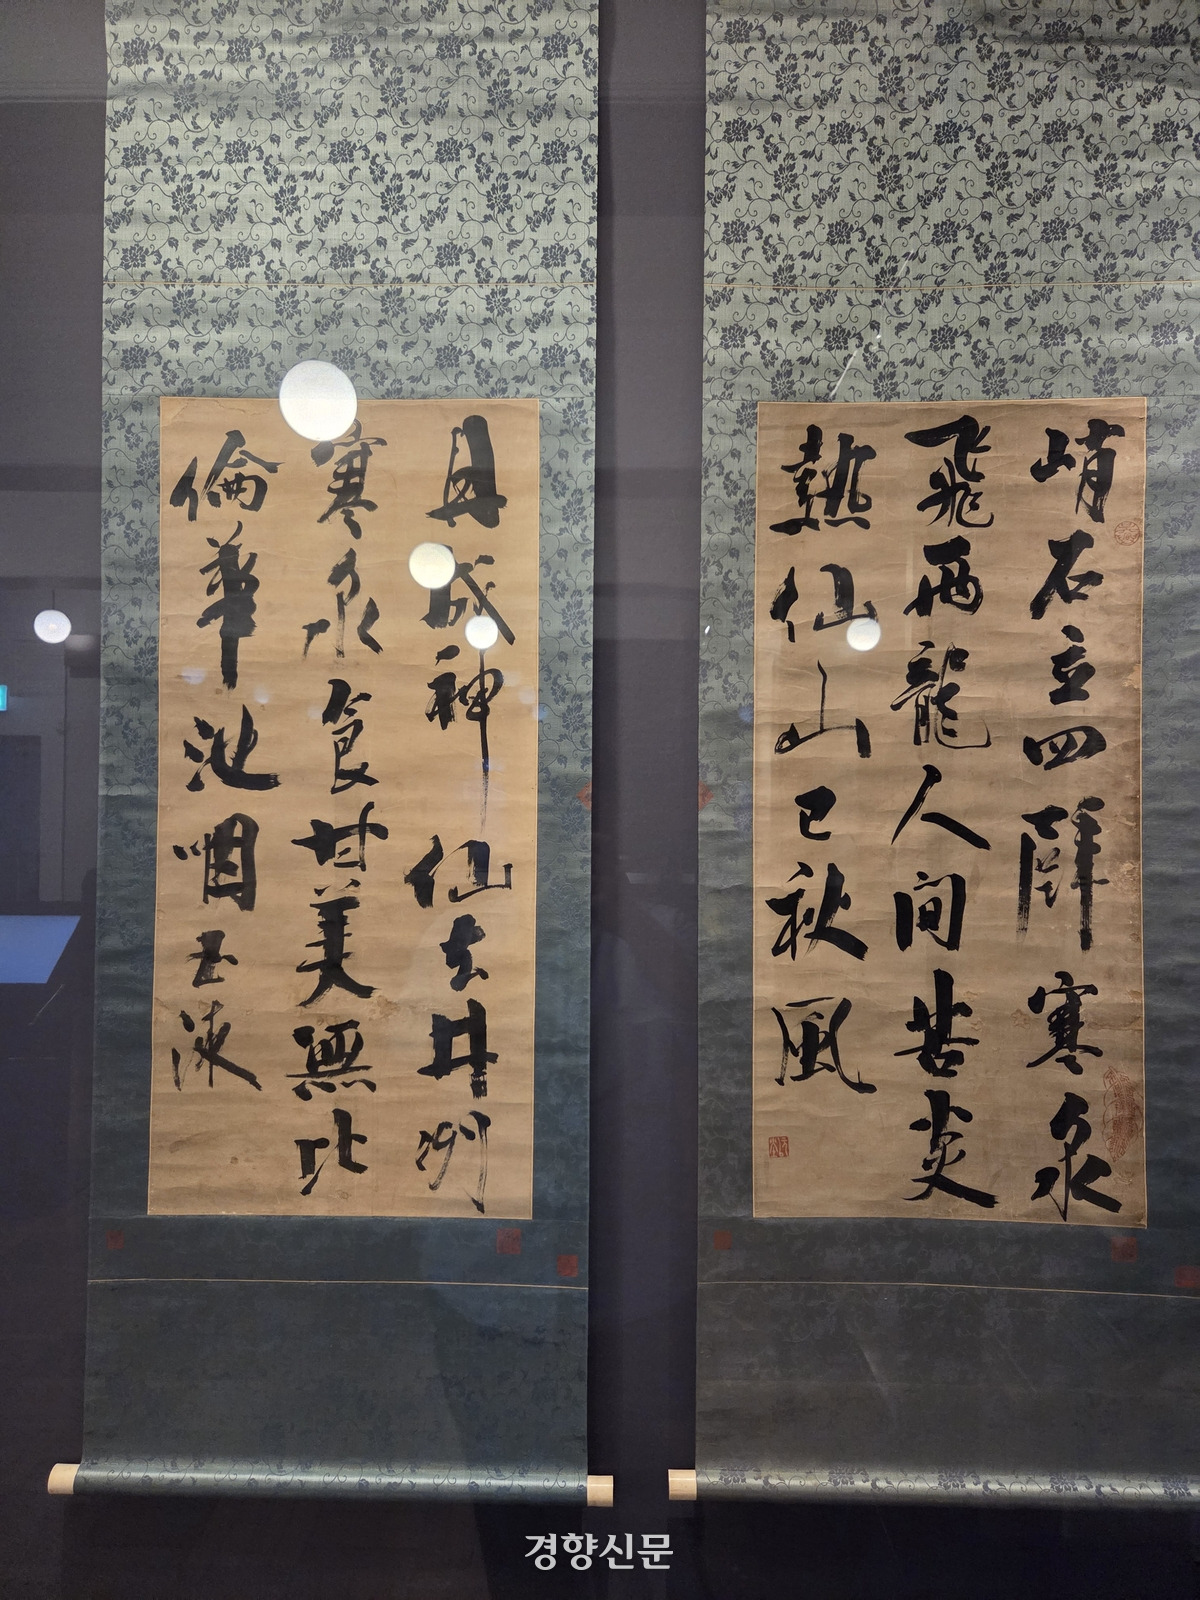 峭石立四壁寒泉
飛兩龍人間苦炎
熱仙山已秋風
丹成神仙去井冽
寒泉食甘美無比
倫華池咽玉液
경향신문